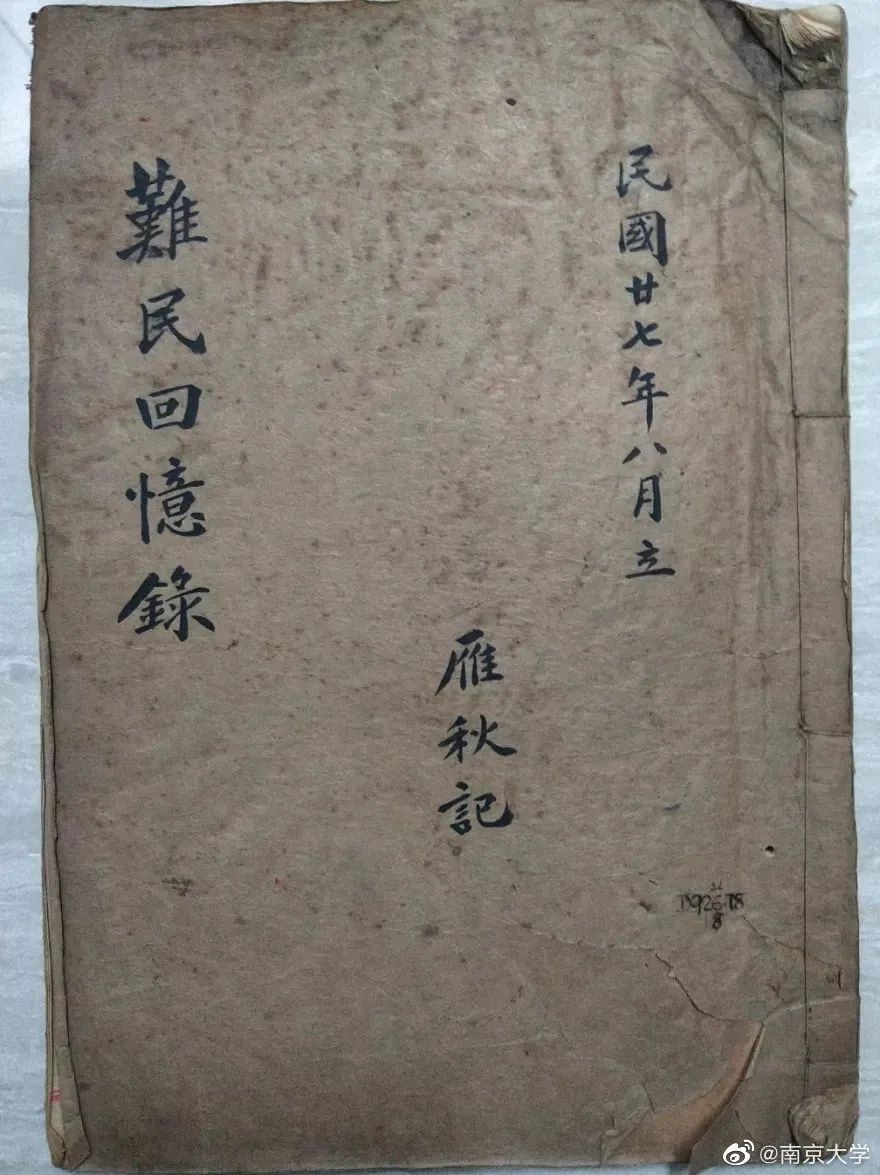 民國廿七年八月立
雁秋記
難民回憶錄
@南京大学